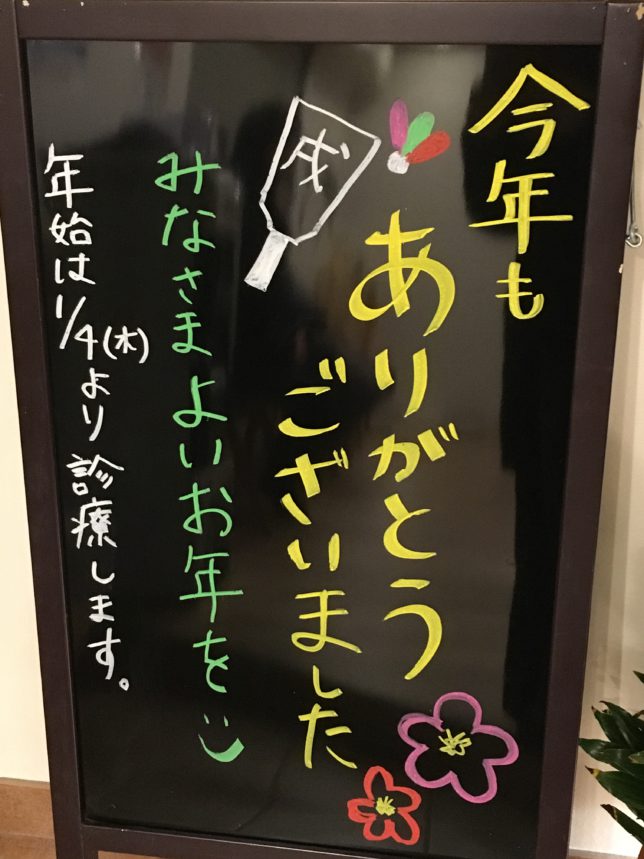 今年も
ありがとう
ございました
戌
みなさまよいお年を
年始は1/4(木)より診療します。